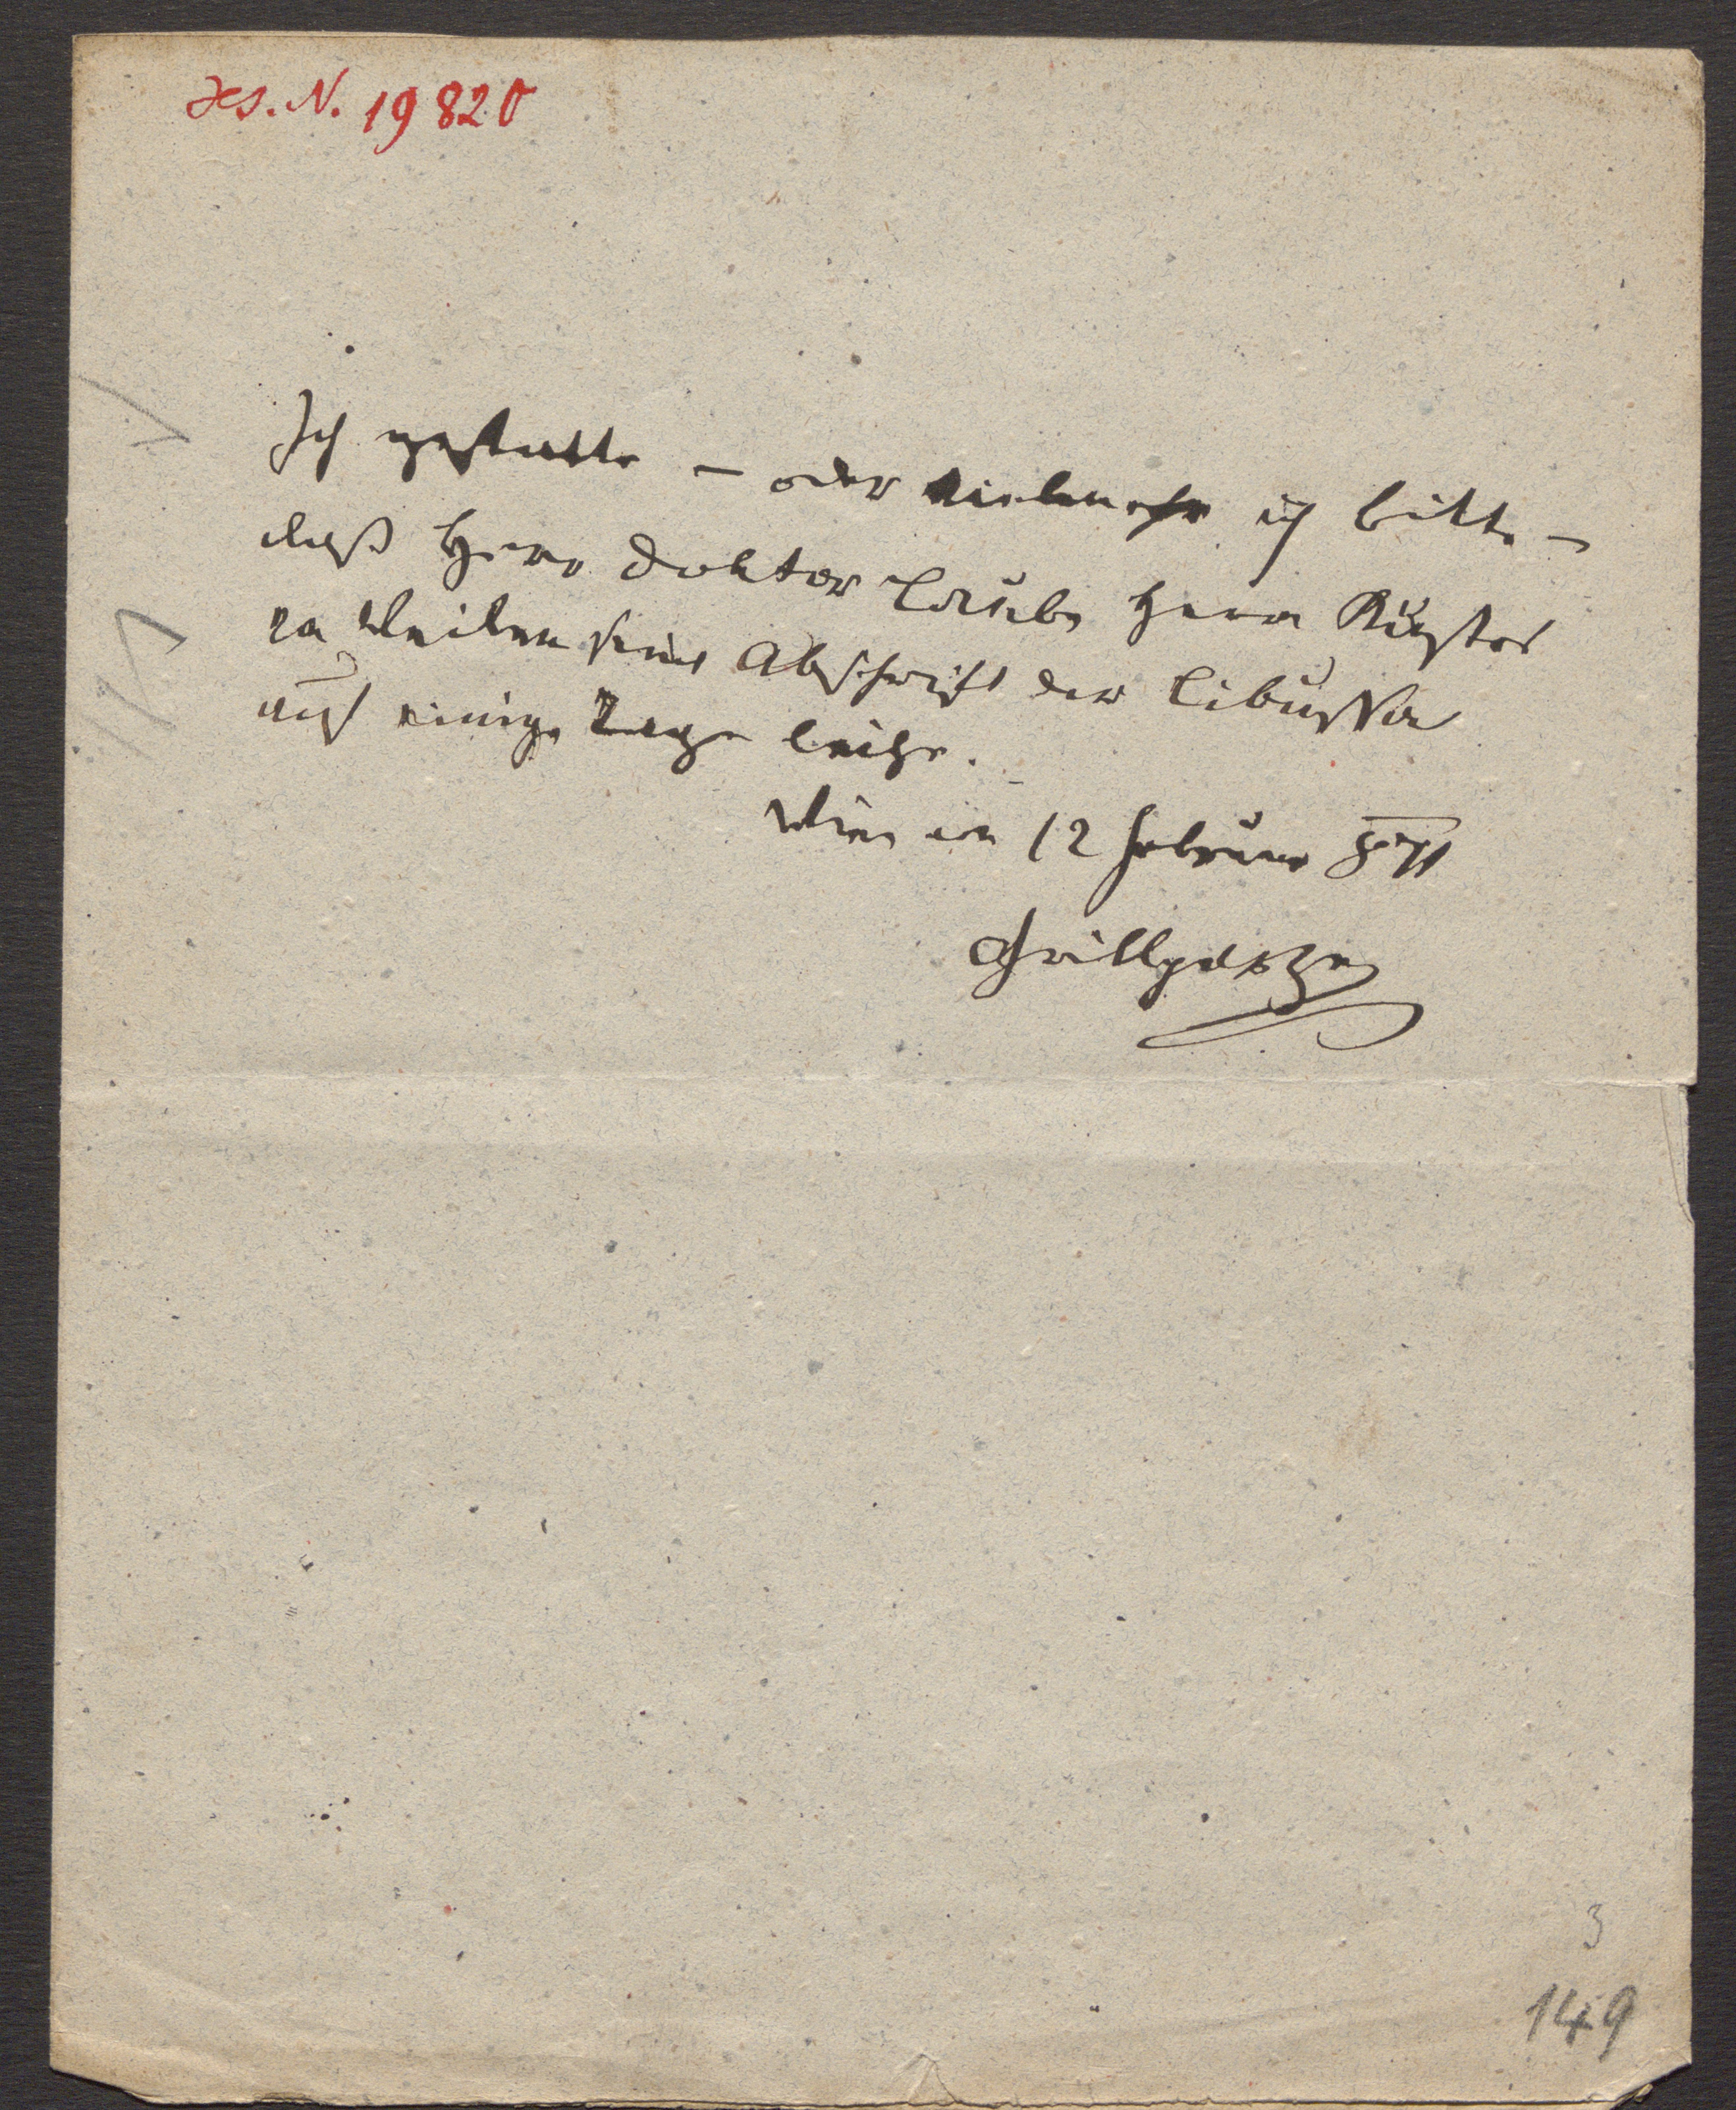 Hs. N. 19820
Ich gestatte – oder vielmehr ich bitte –
daß Herr Doktor Laube Herrn Custos
von Weilen seine Abschrift der Libussa
auf einige Tage leihe.
Wien am 12 Februar 871
Grillparzer
3
149